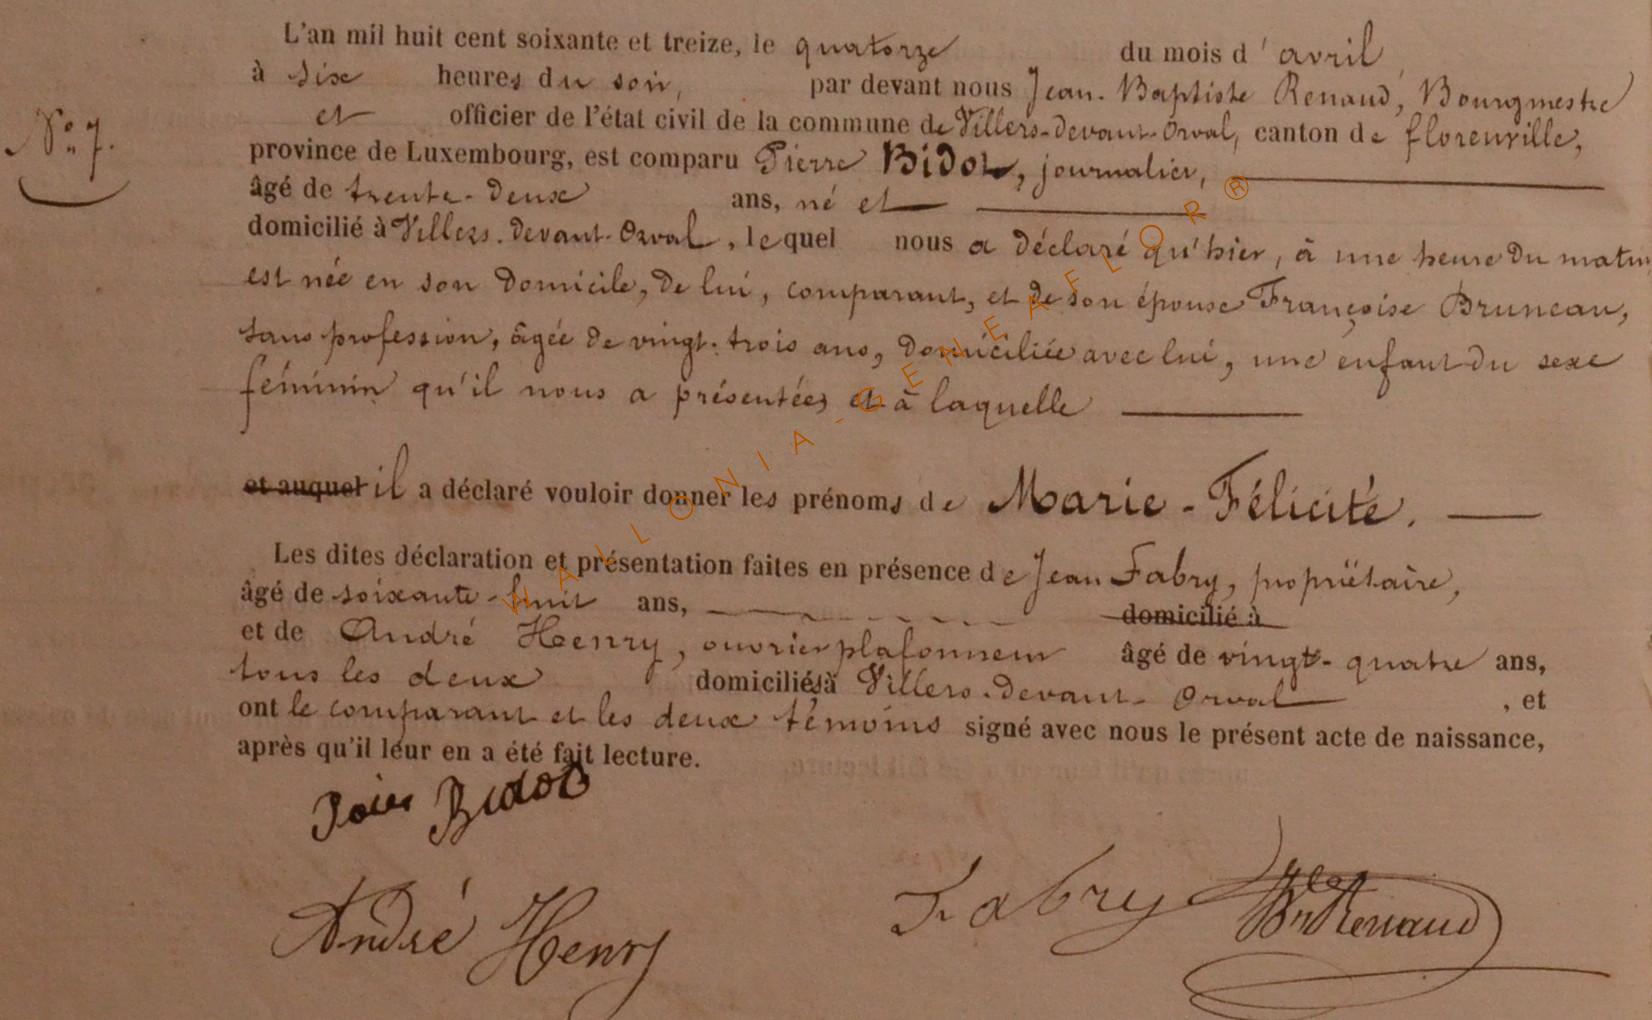 L'an mil huit cent soixante et treize, le quatorze du mois d'avril
à six heures du soir, par devant nous Jean-Baptiste Renaud, Bourgmestre
Nº 7.
et officier de l'état civil de la commune de Villers-devant-Orval, canton de florenville,
province de Luxembourg, est comparu Pierre Bidot, journalier,
âgé de trente-deux ans, né et
domicilié à Villers-devant-Orval, lequel nous a déclaré qu'hier, à une heure du matin
est née en son domicile, de lui, comparant, et de son épouse Françoise Bruneau,
sans profession, âgée de vingt-trois ans, domiciliée avec lui, une enfant du sexe
féminin qu'il nous a présentée, et à laquelle
et auquel il a déclaré vouloir donner les prénoms de Marie-Félicité.
Les dites déclaration et présentation faites en présence de Jean Fabry, propriétaire,
âgé de soixante-huit ans, domicilié à
et de André Henry, ouvrier plafonneur âgé de vingt-quatre ans,
tous les deux domiciliés à Villers-devant-Orval, et
ont le comparant et les deux témoins signé avec nous le présent acte de naissance,
après qu'il leur en a été fait lecture.
Bidot
André Henry
Fabry
Renaud
WALLONIA-GENEAFLOR®